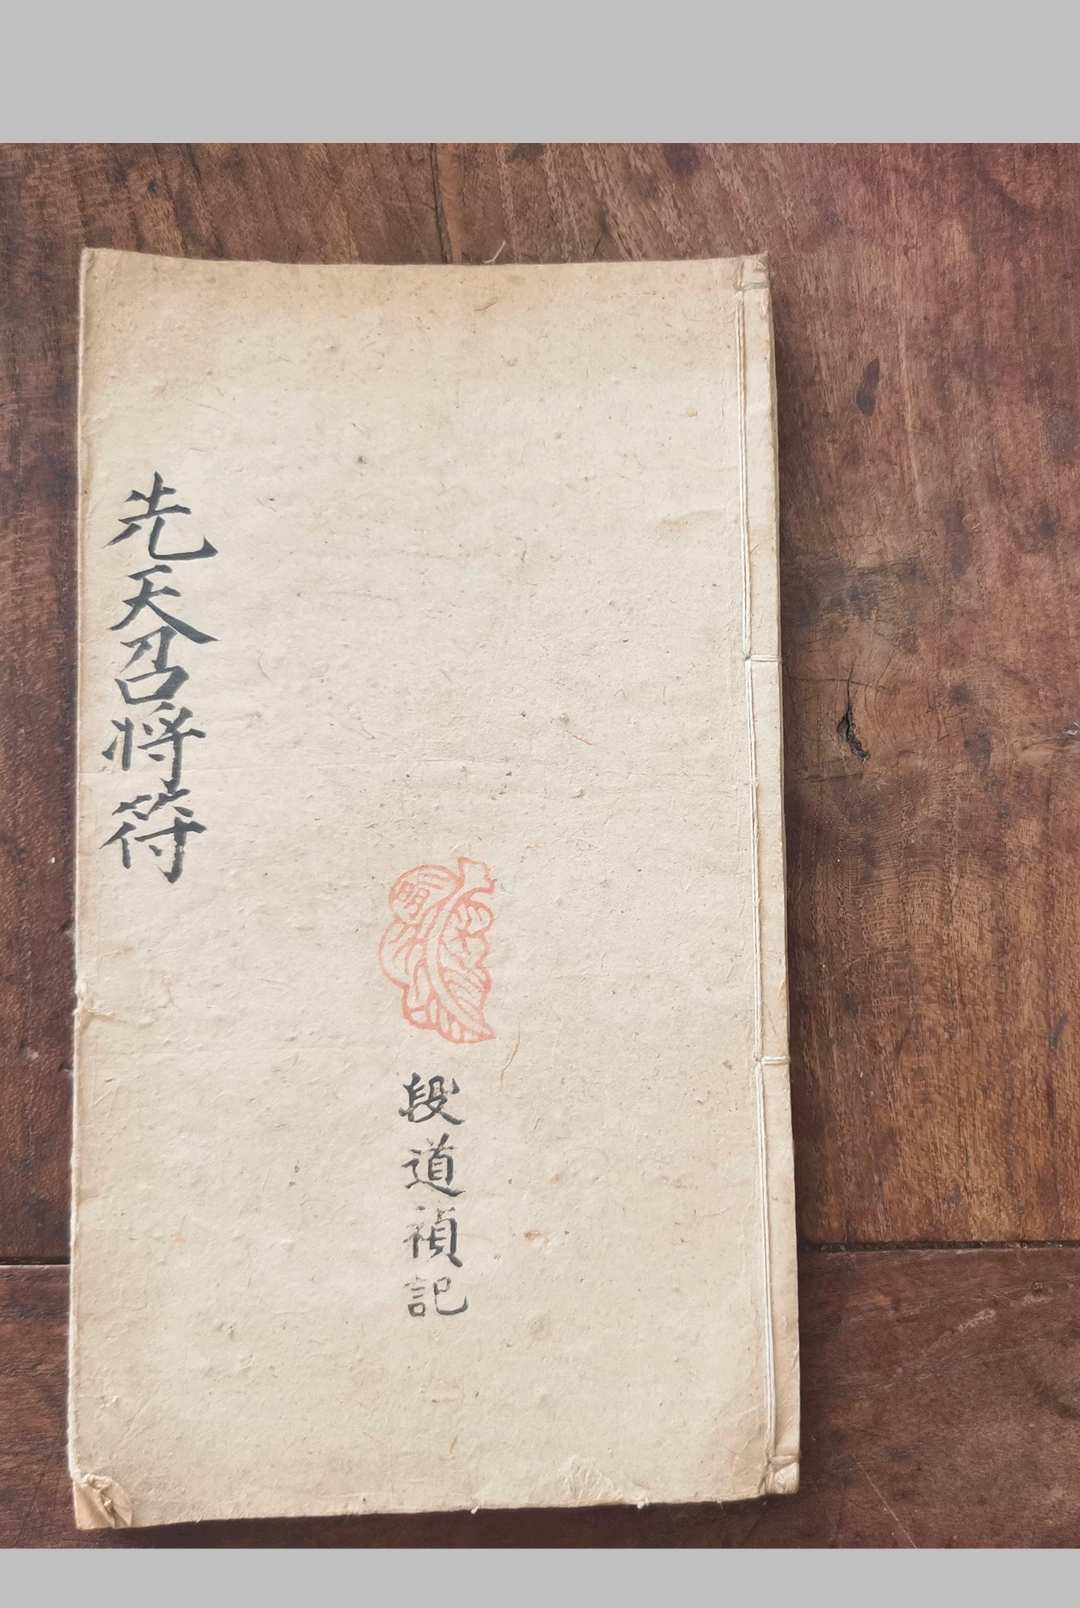 先天召将符
段道禎記